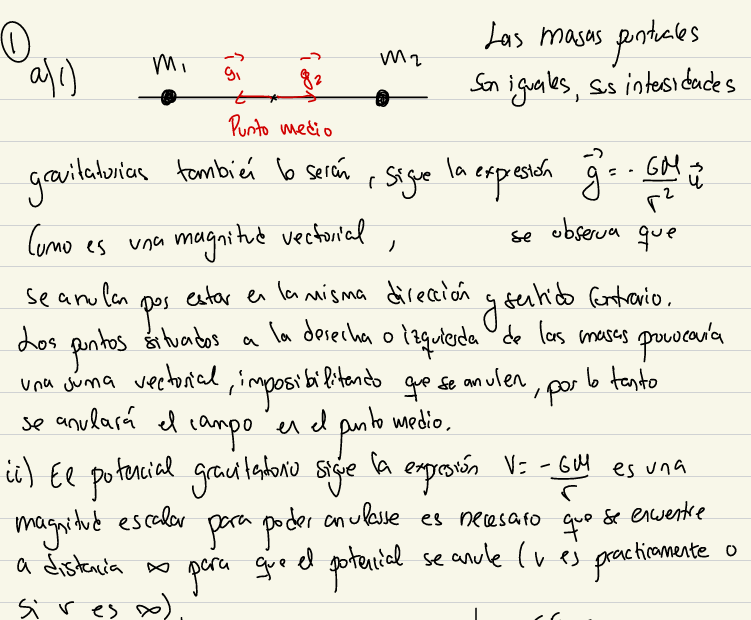 ①
a) i)
m₁ g₁ g₂ m₂ Las masas puntuales
Punto medio
son iguales, sus intensidades
gravitatorias también lo serán, sigue la expresión g⃗ = - GM/r² u⃗
Como es una magnitud vectorial, se observa que
se anulan por estar en la misma dirección y sentido contrario.
Los puntos situados a la derecha o izquierda de las masas provocaría
una suma vectorial, imposibilitando que se anulen, por lo tanto
se anulará el campo en el punto medio.
ii) El potencial gravitatorio sigue la expresión V = - GM/r es una
magnitud escalar para poder anularse es necesario que se encuentre
a distancia ∞ para que el potencial se anule (v es practicamente 0
si r es ∞).